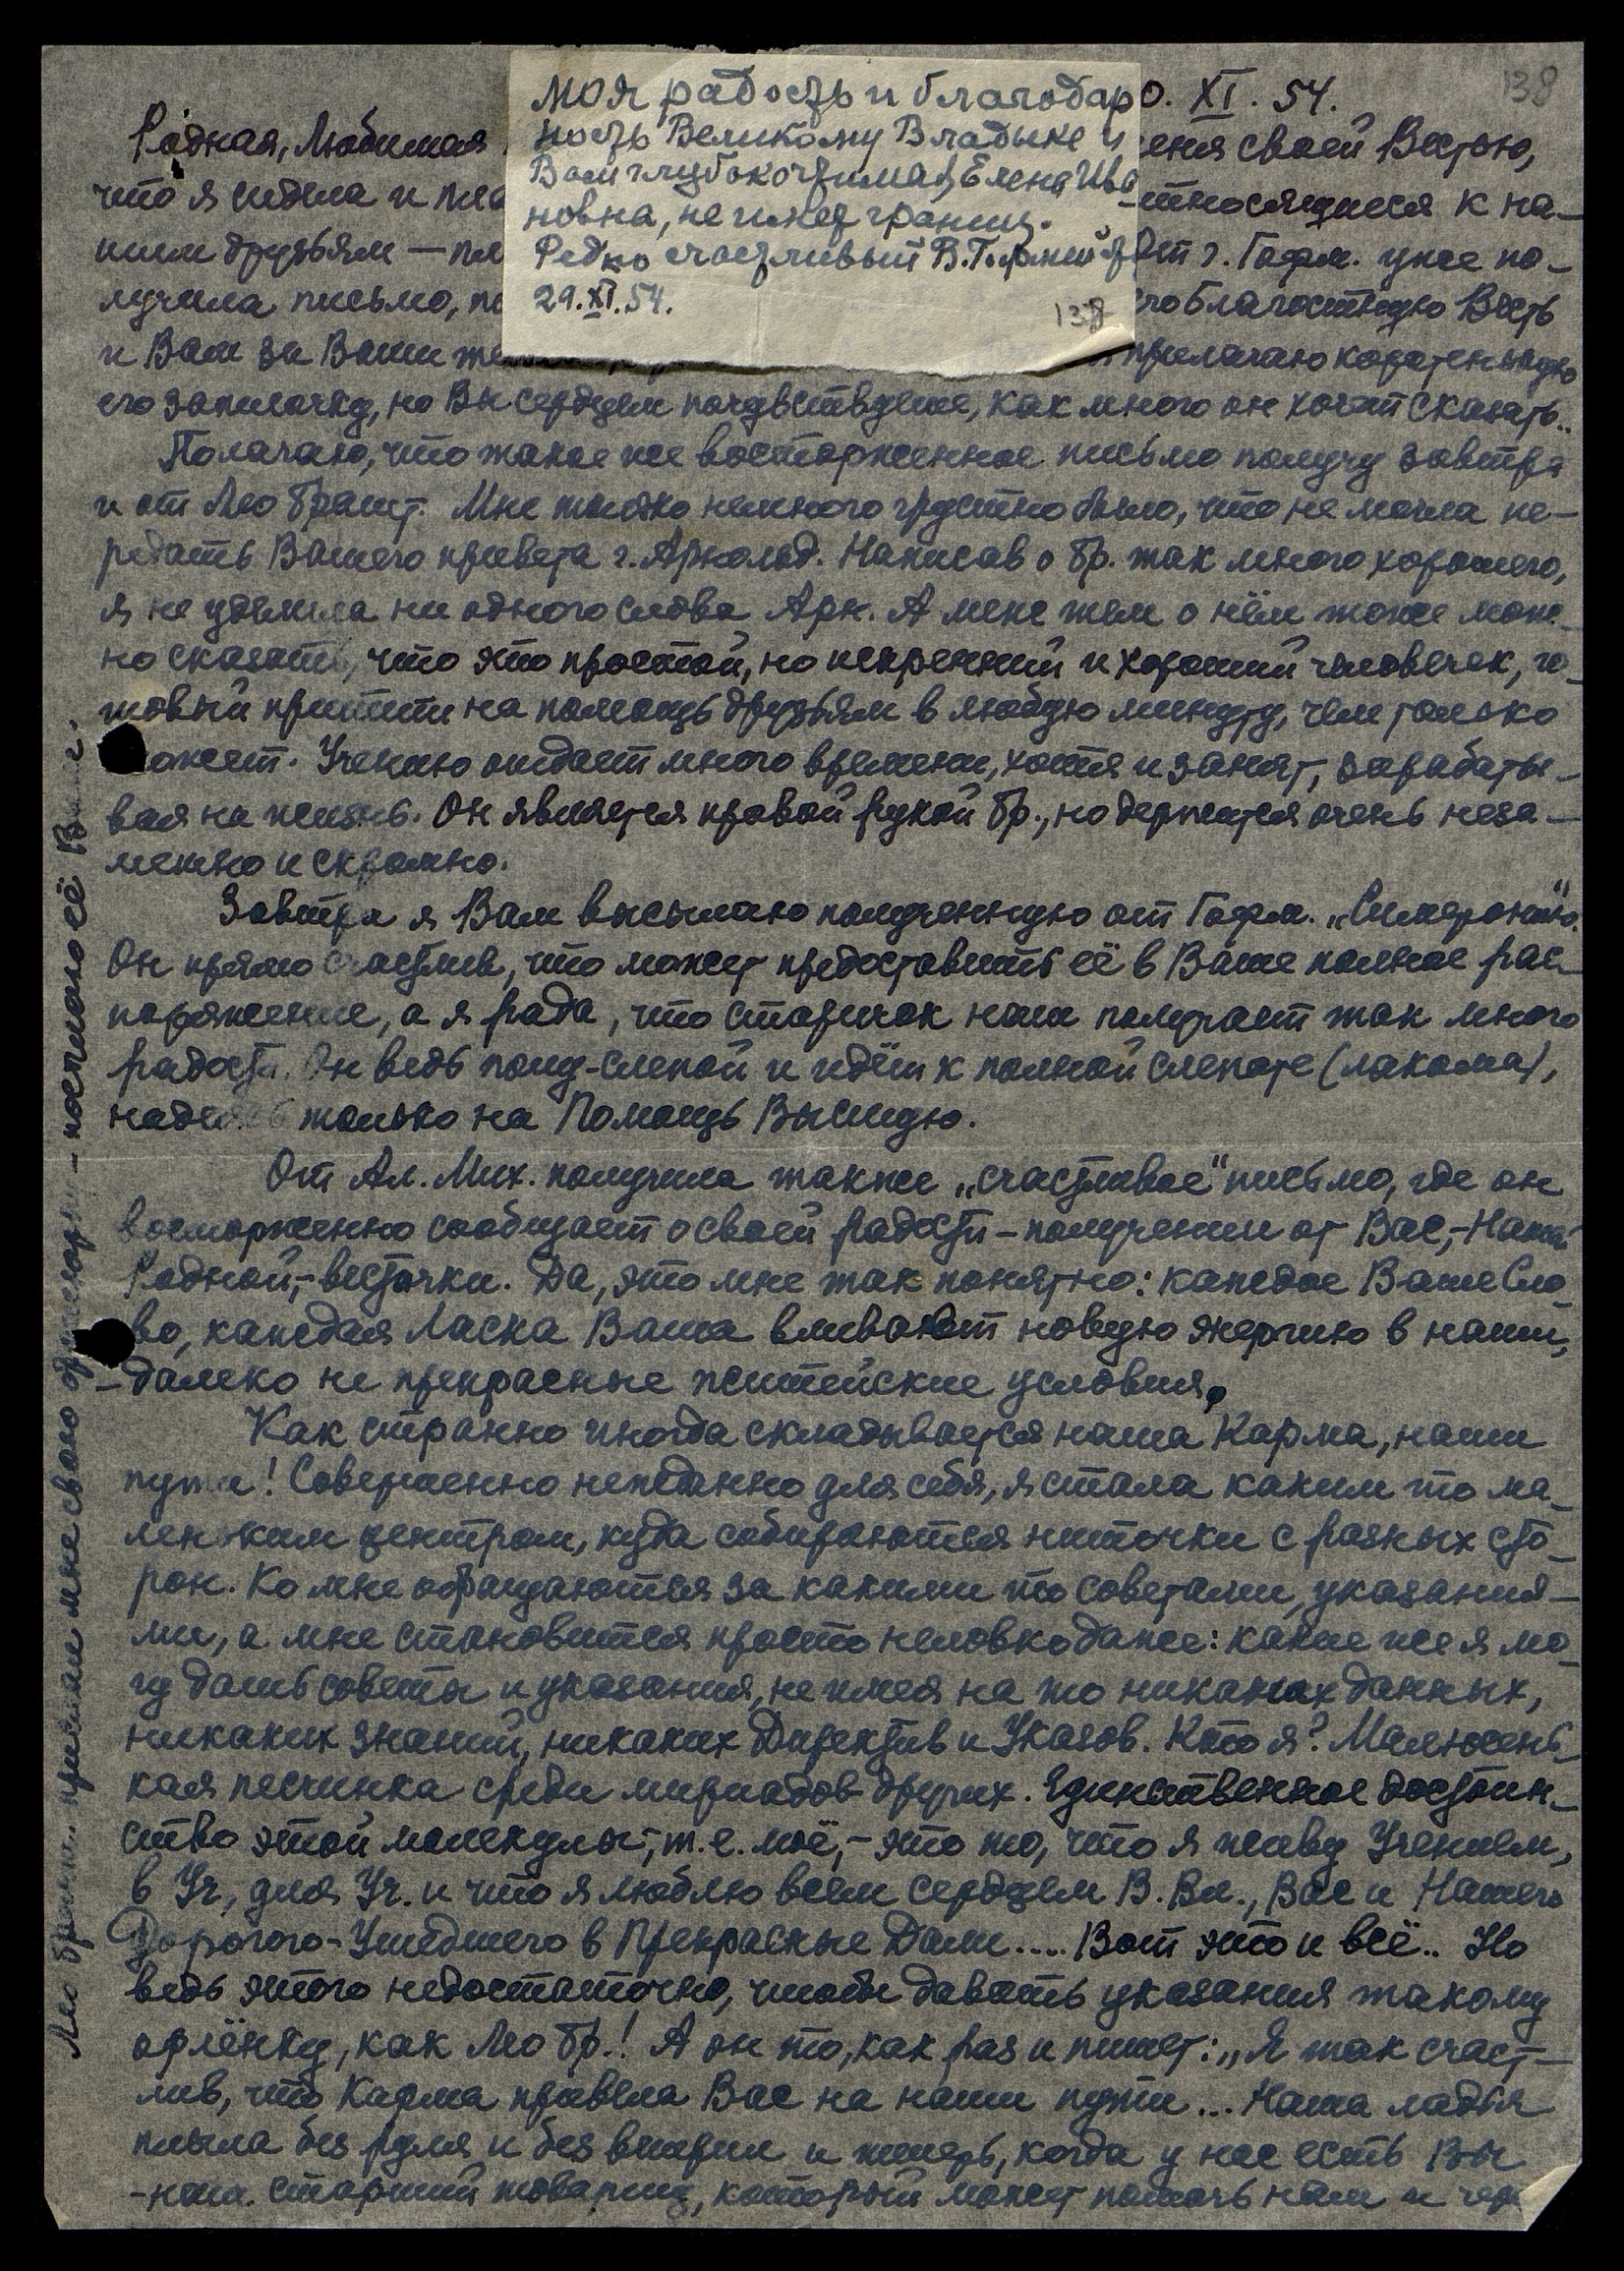 138
моя радость и благодар
ность Великому Владыке и
Вам глубокочтимая, Елена Ива
новна, не имеет границ.
Редко счастливый В.
29.XI.54.
138
0. XI. 54.
Родная, Любимая
еня своей Вестью,
что я сидела и пла
относящиеся к на-
шим друзьям — пи
От г. Гофм. уже по-
лучила письмо, по
его благостную Весть
и Вам за Ваши же
прилагаю коротенькую
его записочку, но Вы сердцем почувствуете, как много он хочет сказать..
Полагаю, что такое же восторженное письмо получу завтра
и от Лео Брант. Мне только немного грустно было, что не могла пе-
редать Вашего привета г. Арнольд. Написав о Бр. так много хорошего,
я не уделила ни одного слова Арн. А меж тем о нём тоже мож-
но сказать, что это простой, но искренний и хороший человечек, го-
товый притти на помощь друзьям в любую минуту, чем только
ожет. Учению отдает много времени, хотя и занят, зарабаты-
вая на жизнь. Он является правой рукой Бр., но держится очень неза-
метно и скромно.
Завтра я Вам высылаю полученную от Гофм. „Симфонию".
Он прямо счастлив, что может предоставить её в Ваше полное рас-
поряжение, а я рада, что старичок наш получает так много
радости. Он ведь полу-слепой и идёт к полной слепоте (глакома),
надеясь только на Помощь Высшую.
От Ал. Мих. получила также „счастливое" письмо, где он
восторженно сообщает о своей радости – получении от Вас,- Нашей
Родной,- весточки. Да, это мне так понятно: каждое Ваше Сло-
во, каждая Ласка Ваша вливают новую энергию в наши,
-далеко не прекрасные житейские условия.
Как странно иногда складывается наша Карма, наши
пути! Совершенно неожиданно для себя, я стала каким то ма-
леньким центром, куда собираются ниточки с разных сто-
рон. Ко мне обращаются за какими то советами, указания-
ми, а мне становится просто неловко даже: какие же я мо-
гу дать советы и указания, не имея на то никаких данных,
никаких знаний, никаких Директив и Указов. Кто я? Малюсень-
кая песчинка среди мириадов других. Единственное достоин-
ство этой молекулы,- т.е. моё,- это то, что я живу Учением,
в Уч., для Уч. и что я люблю всем сердцем В. Вл., Вас и Нашего
Дорогого-Ушедшего в Прекрасные Дали..... Вот это и всё.. Но
ведь этого недостаточно, чтобы давать указания такому
орлёнку, как Лео Бр.! А он то, как раз и пишет: „Я так счаст-
лив, что Карма привела Вас на наши пути... Наша ладья
плыла без руля и без ветрил и теперь, когда у нас есть Вы
-наш старший товарищ, который может помочь нам и
Лео Брант прислал мне свою – посылаю её Вам.